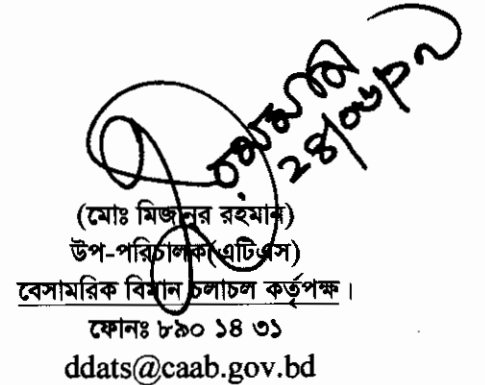 রহমান
২৪/০৬/১২
(মোঃ মিজানুর রহমান)
উপ-পরিচালক(এটিএস)
বেসামরিক বিমান চলাচল কর্তৃপক্ষ।
ফোনঃ ৮৯০ ১৪ ৩১
ddats@caab.gov.bd